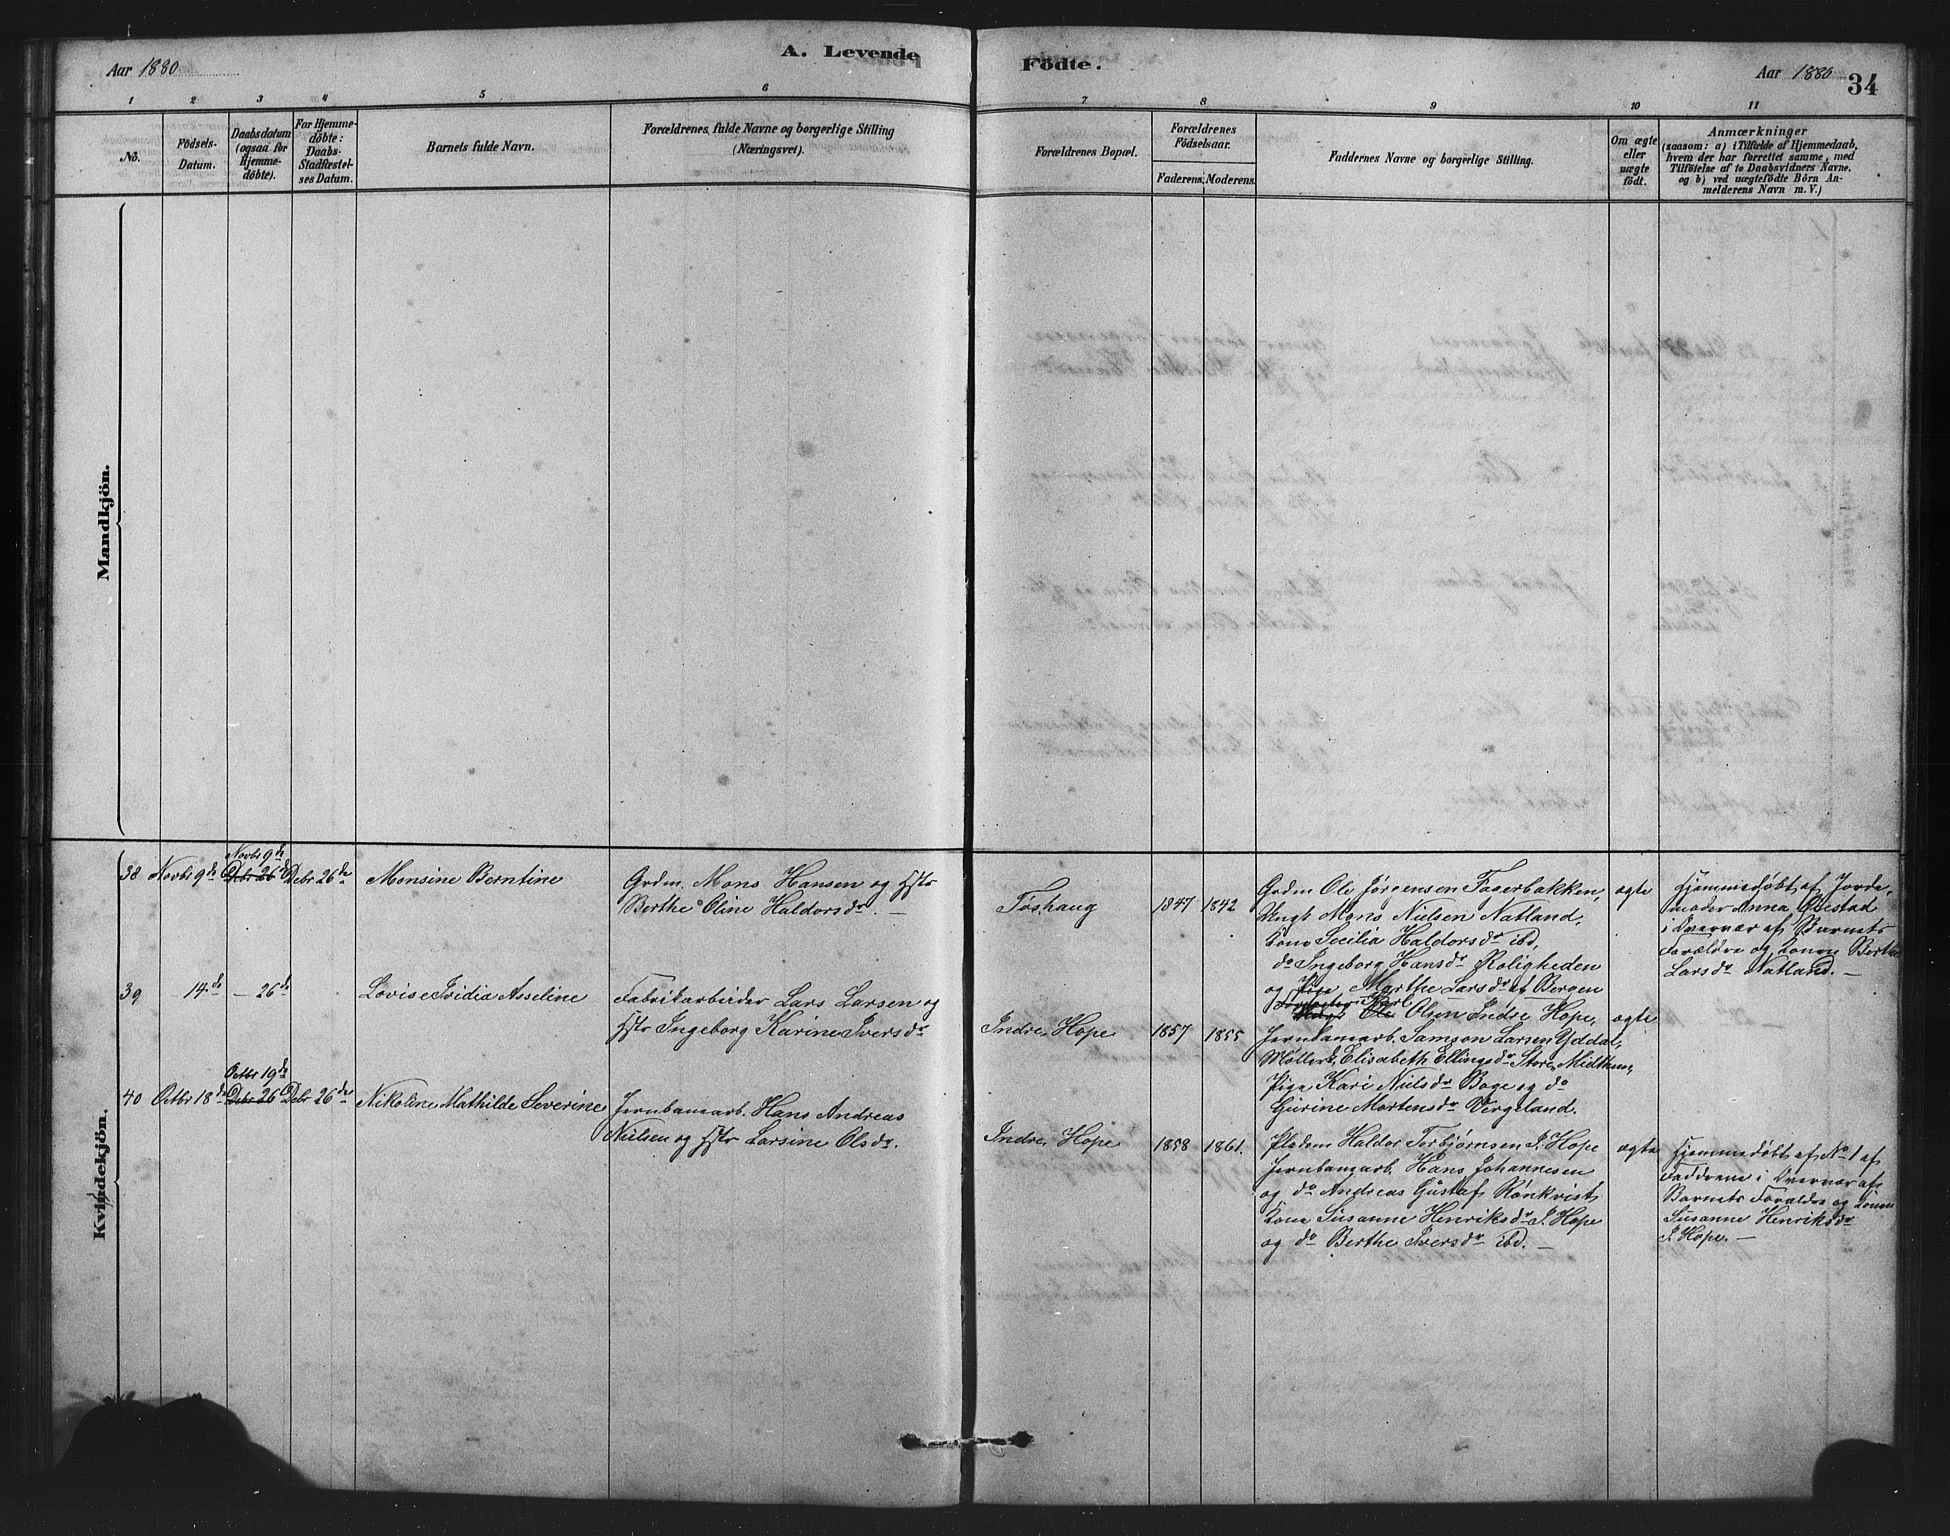 Aar 1880
A. Levende Födte.
Aar 1880
34
1 2 3 4 5 6 7 8 9 10 11
No.
Födsels-
Datum.
Daabsdatum
(ogsaa for
Hjemme-
döbte).
For Hjemme-
döbte:
Daabs-
Stadfæstel-
ses Datum.
Barnets fulde Navn.
Forældrenes fulde Navne og borgerlige Stilling
(Næringsvei).
Forældrenes Bopæl.
Forældrenes
Födselsaar.
Faderens. Moderens.
Faddernes Navne og borgerlige Stilling.
Om ægte
eller
uægte
födt.
Anmærkninger
(saasom: a) i Tilfælde af Hjemmedaab,
hvem der har forrettet samme, med
Tilföielse af to Daabsvidners Navne,
og b) ved uægtefödte Börn An-
melderens Navn m. V.)
Mandkjön.
Kvindekjön.
38 Novbr 9de
Novbr 9de
Debr 26de
Debr 26de
Monsine Berntine
Grdm. Mons Hansen og Hstr
Berthe Oline Haldorsdr. —
Toshaug
1847 1842
Grdm Ole Jørgensen Fagerbakken,
Ungk Mons Nielsen Natland,
Kone Secilia Haldorsdr ibd,
do Ingeborg Hansdr Roligheden
og Pige Marthe Larsdr af Bergen
ægte
Hjemmedøbt af Jorde-
moder Anna Øvestad
i Overvær af Barnets
Forældre og Konen Berthe
Larsdr Natland. —
39 14de — 26de
Lovise Fridia Asseline
Fabrikarbeider Lars Larsen og
Hstr Ingeborg Karine Iversdr
Indre Hope
1857 1855
Karl
Ungk Ole Olsen Indre Hope,
Jernbanearb. Samson Larsen Yddal,
Møllerk. Elisabeth Ellingsdr Store Midthun,
Pige Kari Nielsdr Boge og do
Gurine Mortensdr Vergeland.
ægte
40 Octbr 18de
Octbr 19de
Debr 26
Debr 26de
Nikoline Mathilde Severine
Jernbanearb. Hans Andreas
Nielsen og Hstr Larsine Olsdr.
Indre Hope
1858 1861.
Pladsm Haldor Torbjørnsen I. Hope
Jernbanearb. Hans Johannesen
og do Andreas Gustaf Rönkvist
Kone Susanne Henriksdr I. Hope
og do Berthe Iversdr ibd. —
ægte
Hjemmedøbt af No 1 af
Faddrene i Overvær af
Barnets Forældre og Konen
Susanne Henriksdr
I. Hope. —